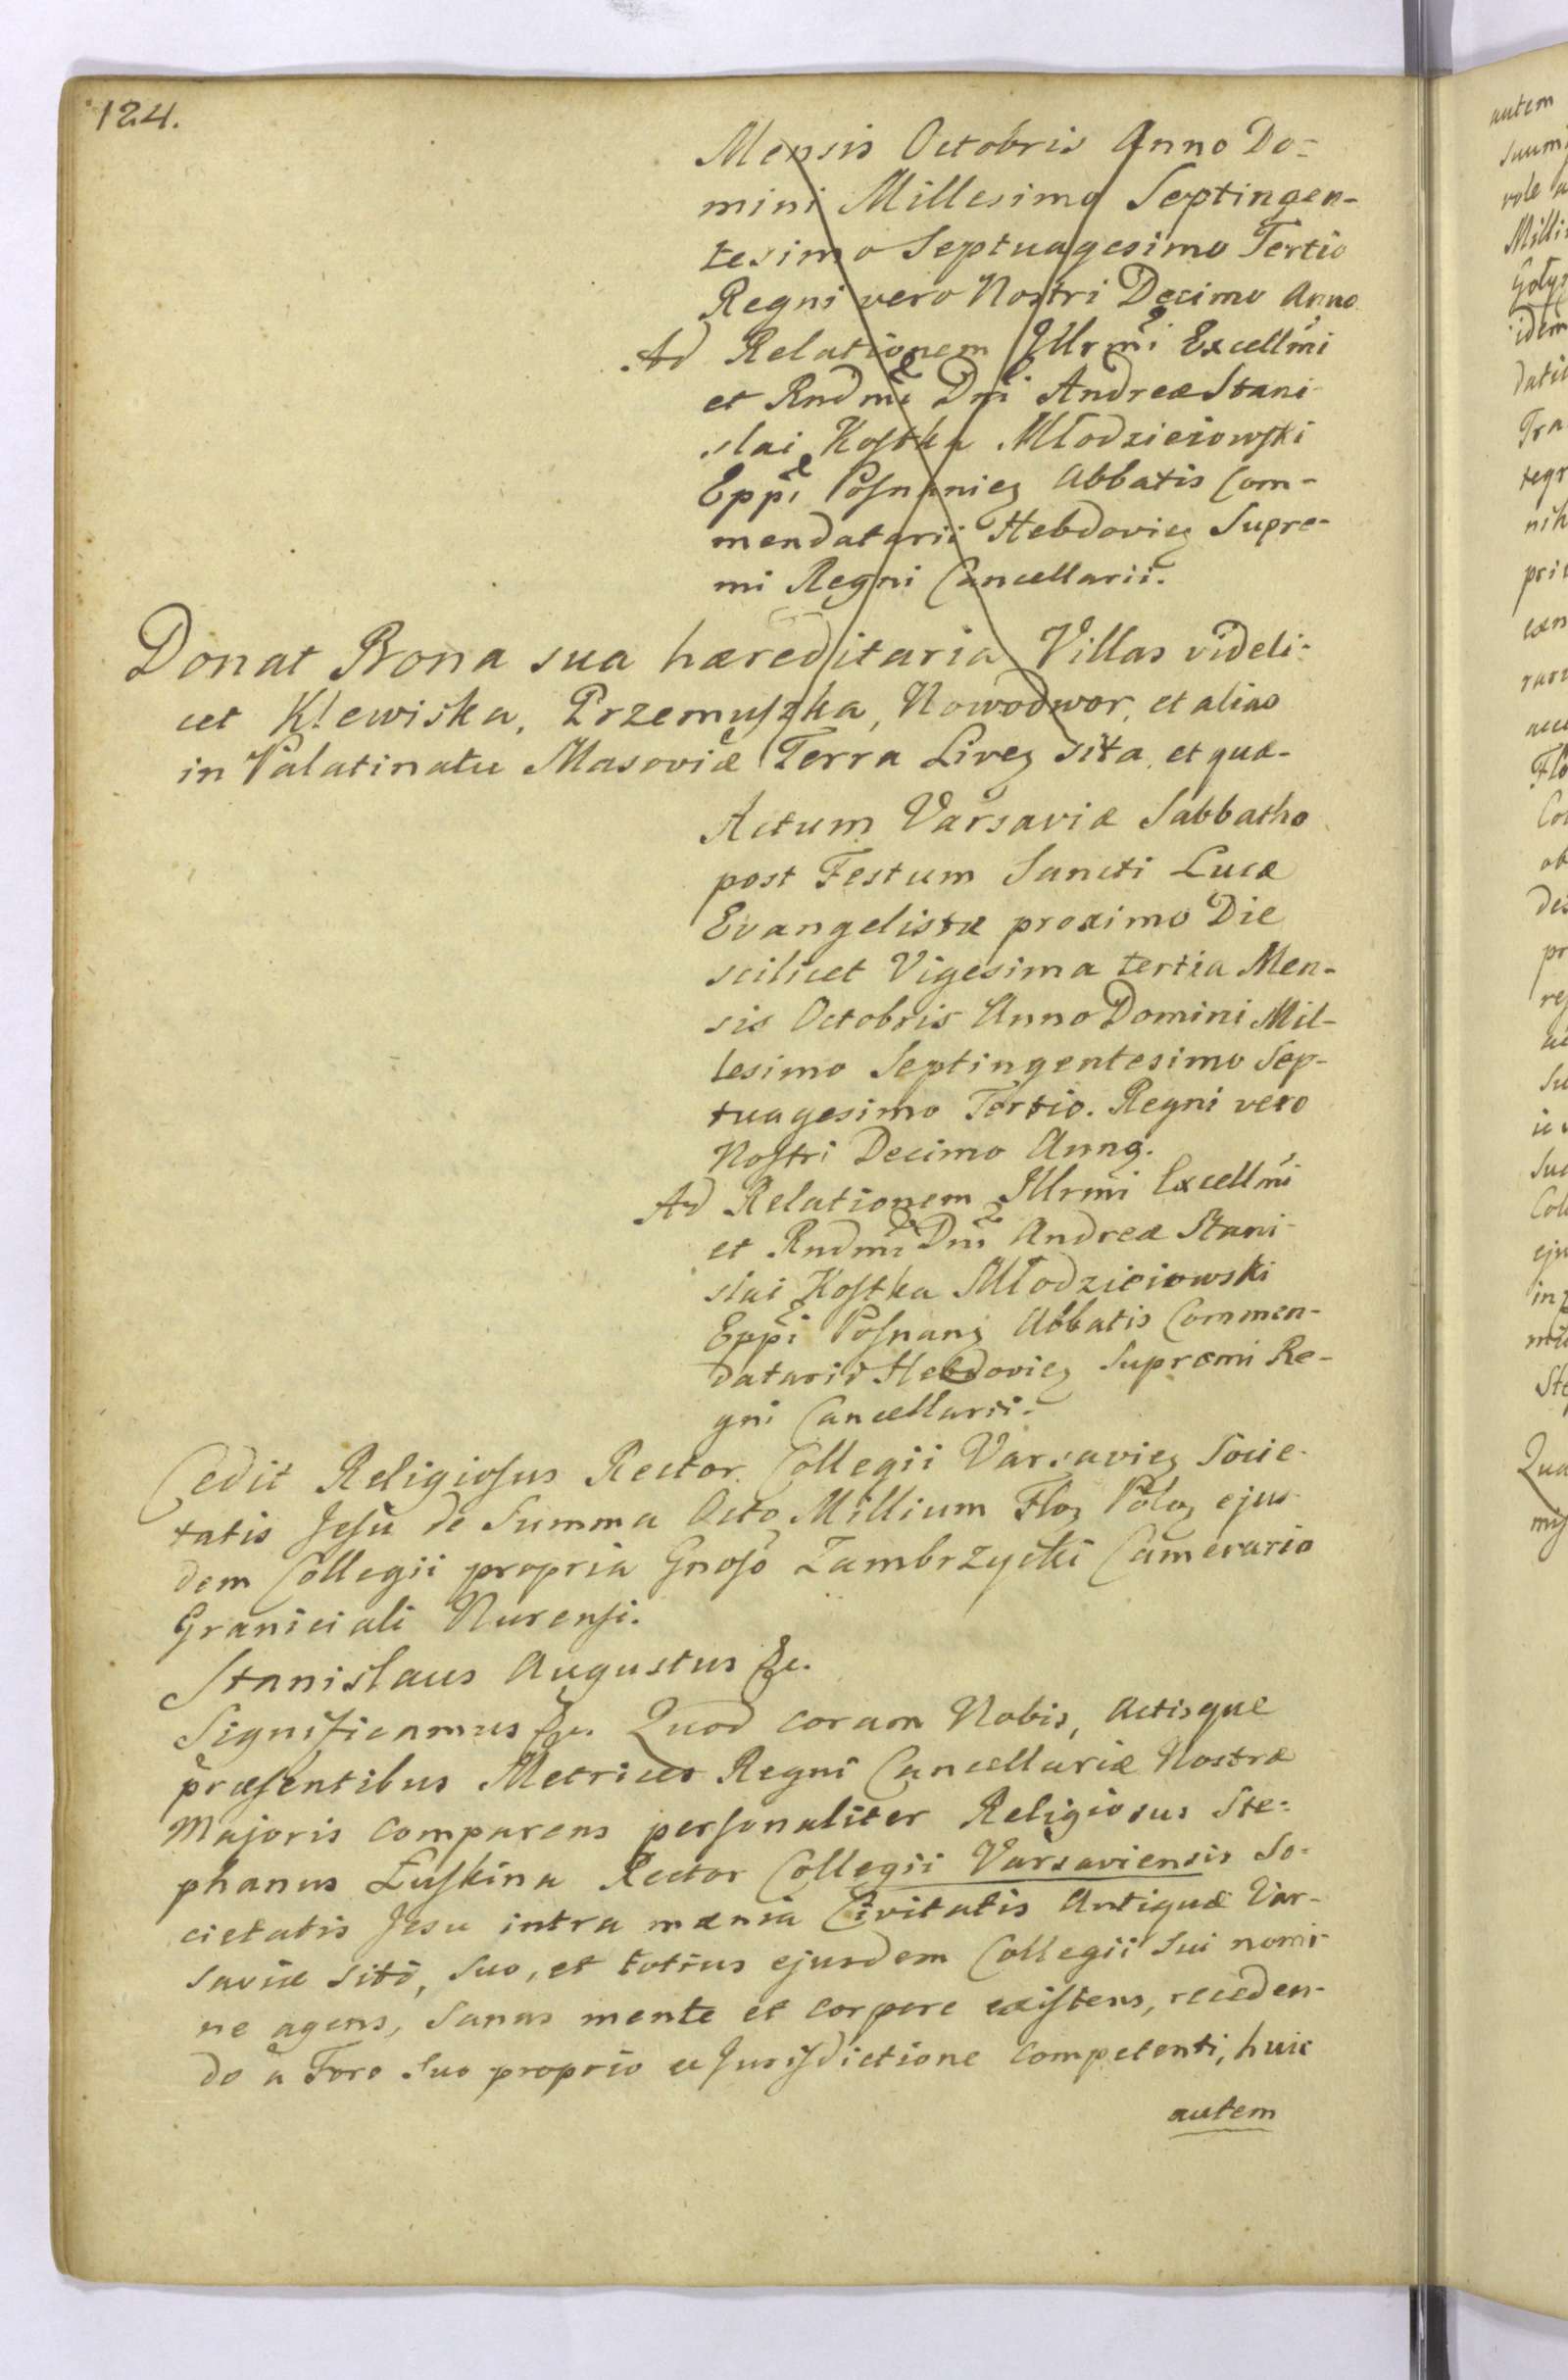 124.
Mensis Octobris Anno Do=
mini Millesimo Septingen-
tesimo Septuagesimo Tertio
Regni vero Nostri Decimo Anno
Ad Relationem Illrmi Excellmi
et Rndmi Dni Andreæ Stani-
slai Kostka Młodzieiowski
Eppi Posnanieȝ Abbatis Com-
mendatarii Hebdovieȝ Supre-
mi Regni Cancellarii.
Donat Bona sua hæreditaria Villas videli-
cet Klewiska, Przemuszka, Nowodwor, et alias
in Palatinatu Masoviæ Terra Liveȝ sita, et quæ-
Actum Varsaviæ Sabbatho
post Festum Sancti Lucæ
Evangelistæ proximo Die
scilicet Vigesima tertia Men-
sis Octobris Anno Domini Mil-
lesimo Septingentesimo Sep-
tuagesimo Tertio. Regni vero
Nostri Decimo Anno.
Ad Relationem Illrmi Excellmi
et Rndmi Dni Andreæ Stani-
slai Kostka Młodzieiowski
Eppi Posnanȝ Abbatis Commen-
datarii Hebdovieȝ Supremi Re-
gni Cancellarii.
Cedit Religiosus Rector Collegii Varsavieȝ Socie-
tatis Jesu de Summa Octo Millium Floȝ Poloȝ ejus-
dem Collegii propria Gnoso Zambrzycki Camerario
Graniciali Nurensi.
Stanislaus Augustus &c.
Significamus &c. Quod coram Nobis, Actisque
præsentibus Metrices Regni Cancellariæ Nostræ
Majoris comparens personaliter Religiosus Ste=
phanus Łuskina Rector Collegii Varsaviensis So-
cietatis Jesu intra mænia Civitatis Antiquæ Var-
saviæ siti, suo, et totius ejusdem Collegii sui nomi-
ne agens, sanus mente et corpore existens, receden-
do à Foro suo proprio et Jurisdictione competenti, huic
autem